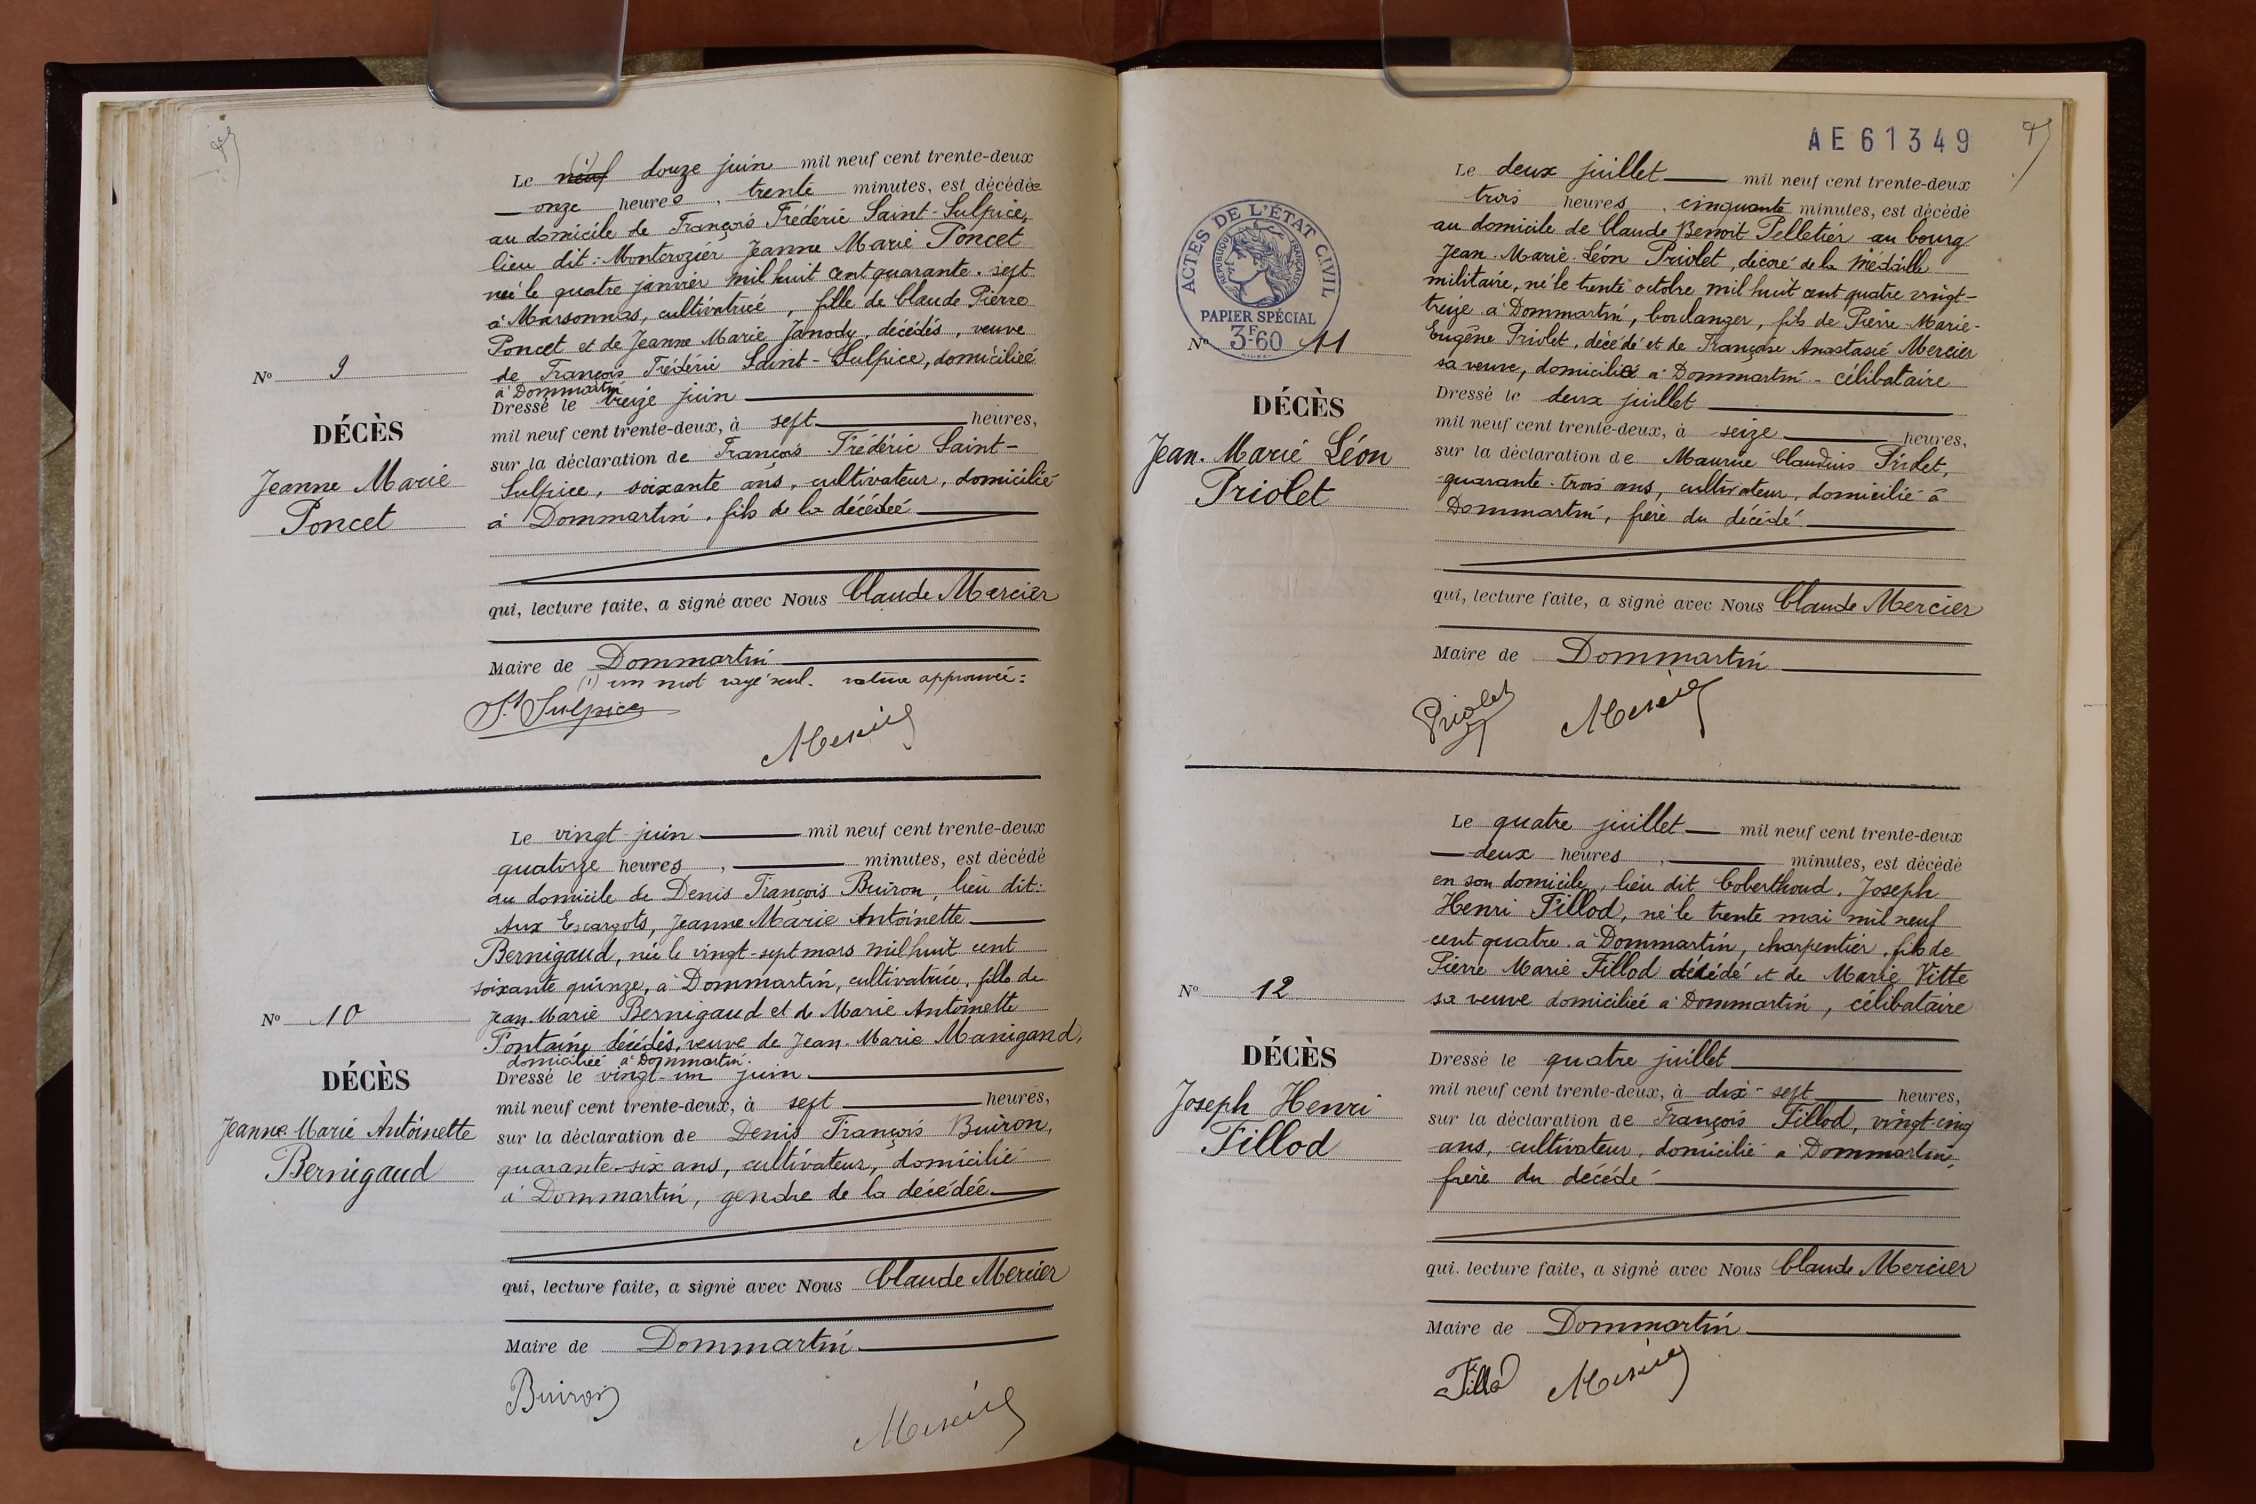 Le neuf douze juin mil neuf cent trente-deux
onze heures, trente minutes, est décédée
au domicile de François Frédéric Saint-Sulpice,
lieu dit: Montcrozier Jeanne Marie Poncet
née le quatre janvier mil huit cent quarante-sept
à Marsonnas, cultivatrice, fille de Claude Pierre
Poncet et de Jeanne Marie Janody, décédés, veuve
de François Frédéric Saint-Sulpice, domiciliée
à Dommartin
N° 9
DÉCÈS
Jeanne Marie
Poncet
Dressé le treize juin
mil neuf cent trente-deux, à sept heures,
sur la déclaration de François Frédéric Saint-
Sulpice, soixante ans, cultivateur, domicilié
à Dommartin, fils de la décédée
qui, lecture faite, a signé avec Nous Claude Mercier
Maire de Dommartin
(1) un mot rayé nul. rature approuvée:
St Sulpice
Mercier
Le vingt juin mil neuf cent trente-deux
quatorze heures, minutes, est décédé
au domicile de Denis François Buiron, lieu dit:
Aux Escargots, Jeanne Marie Antoinette
Bernigaud, née le vingt-sept mars mil huit cent
soixante quinze, à Dommartin, cultivatrice, fille de
Jean-Marie Bernigaud et de Marie Antoinette
Fontaine décédés, veuve de Jean-Marie Manigand,
domiciliée à Dommartin.
N° 10
DÉCÈS
Jeanne Marie Antoinette
Bernigaud
Dressé le vingt-un juin
mil neuf cent trente-deux, à sept heures,
sur la déclaration de Denis François Buiron,
quarante-six ans, cultivateur, domicilié
à Dommartin, gendre de la décédée
qui, lecture faite, a signé avec Nous Claude Mercier
Maire de Dommartin
Buiron
Mercier
AE61349
Le deux juillet mil neuf cent trente-deux
trois heures, cinquante minutes, est décédé
au domicile de Claude Benoit Pelletier au bourg
Jean-Marie-Léon Priolet, decoré de la Médaille
militaire, né le trente octobre mil huit cent quatre vingt-
treize à Dommartin, boulanger, fils de Pierre-Marie-
Eugène Priolet, décédé et de Françoise Anastasie Mercier
sa veuve, domicilié à Dommartin - célibataire
ACTES DE L'ÉTAT CIVIL
RÉPUBLIQUE FRANÇAISE
PAPIER SPÉCIAL
3F60
N° 11
DÉCÈS
Jean-Marie Léon
Priolet
Dressé le deux juillet
mil neuf cent trente-deux, à seize heures,
sur la déclaration de Maurice Claudius Priolet,
quarante-trois ans, cultivateur, domicilié à
Dommartin, frère du décédé
qui, lecture faite, a signé avec Nous Claude Mercier
Maire de Dommartin
Priolet
Mercier
Le quatre juillet mil neuf cent trente-deux
deux heures, minutes, est décédé
en son domicile, lieu dit Coberthoud, Joseph
Henri Fillod, né le trente mai mil neuf
cent quatre à Dommartin, charpentier, fils de
Pierre Marie Fillod décédé et de Marie Vitte
sa veuve domiciliée à Dommartin, célibataire
N° 12
DÉCÈS
Joseph Henri
Fillod
Dressé le quatre juillet
mil neuf cent trente-deux, à dix-sept heures,
sur la déclaration de François Fillod, vingt-cinq
ans, cultivateur, domicilié à Dommartin,
frère du décédé
qui, lecture faite, a signé avec Nous Claude Mercier
Maire de Dommartin
Fillod
Mercier